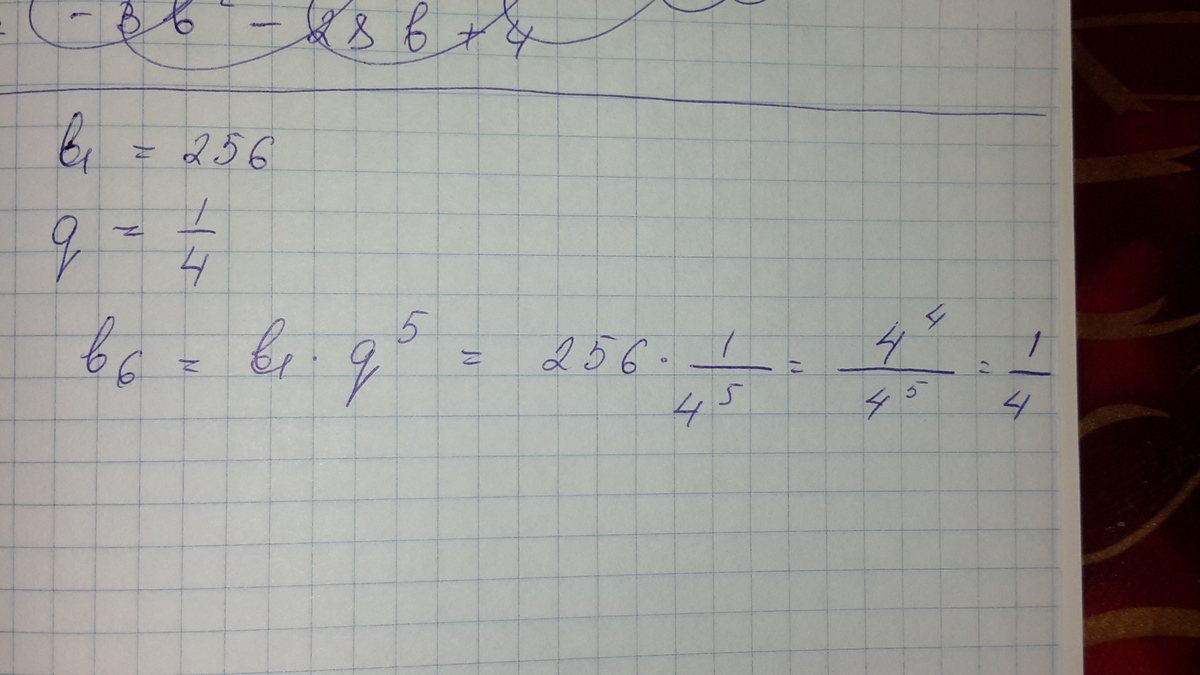 - 3b² - 28b + 4
b₁ = 256
q = 1/4
b₆ = b₁ · q⁵ = 256 · 1/4⁵ = 4⁴/4⁵ = 1/4